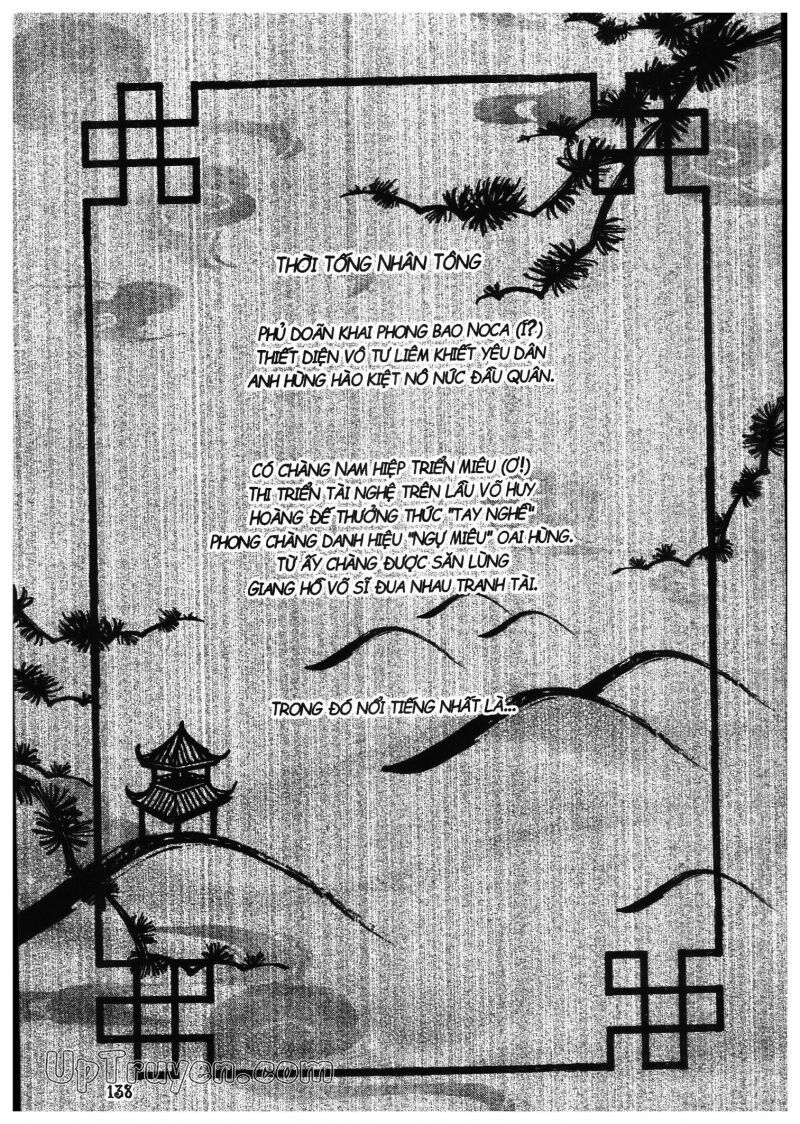 THỜI TỐNG NHÂN TÔNG
PHỦ DOÃN KHAI PHONG BAO NOCA (Í?)
THIẾT DIỆN VÔ TƯ LIÊM KHIẾT YÊU DÂN
ANH HÙNG HÀO KIỆT NÔ NỨC ĐẦU QUÂN.
CÓ CHÀNG NAM HIỆP TRIỂN MIÊU (Ơ!)
THI TRIỂN TÀI NGHỆ TRÊN LẦU VÕ HUY
HOÀNG ĐẾ THƯỞNG THỨC "TAY NGHỀ"
PHONG CHÀNG DANH HIỆU "NGỰ MIÊU" OAI HÙNG.
TỪ ẤY CHÀNG ĐƯỢC SĂN LÙNG
GIANG HỒ VÕ SĨ ĐUA NHAU TRANH TÀI.
TRONG ĐÓ NỔI TIẾNG NHẤT LÀ...
UpTruyen.com
138